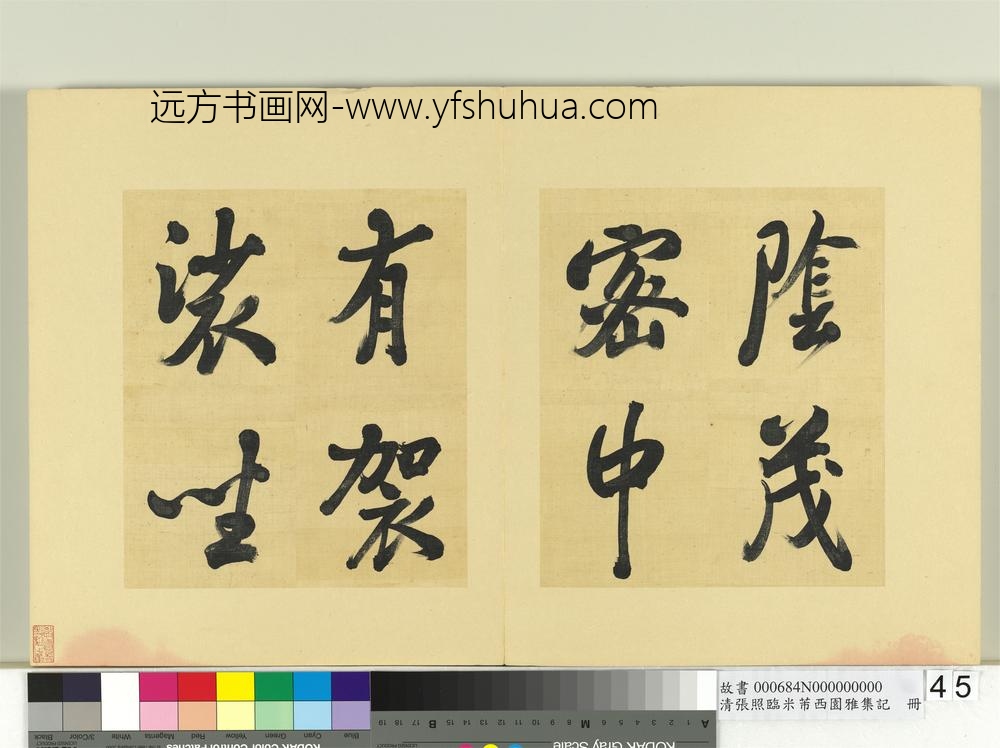 远方书画网-www.yfshuhua.com
陰茂
密中
有袈
裟坐
故書 000684N000000000
清張照臨米芾西園雅集記 冊
45
Black
3/Color
White
Magenta
Red
Yellow
Green
Cyan
Blue
KODAK Color Control Patches
KODAK Gray Scale
A 1 2 3 4 5 6 M 8 9 10 11 12 13 14 15 B 17 18 19